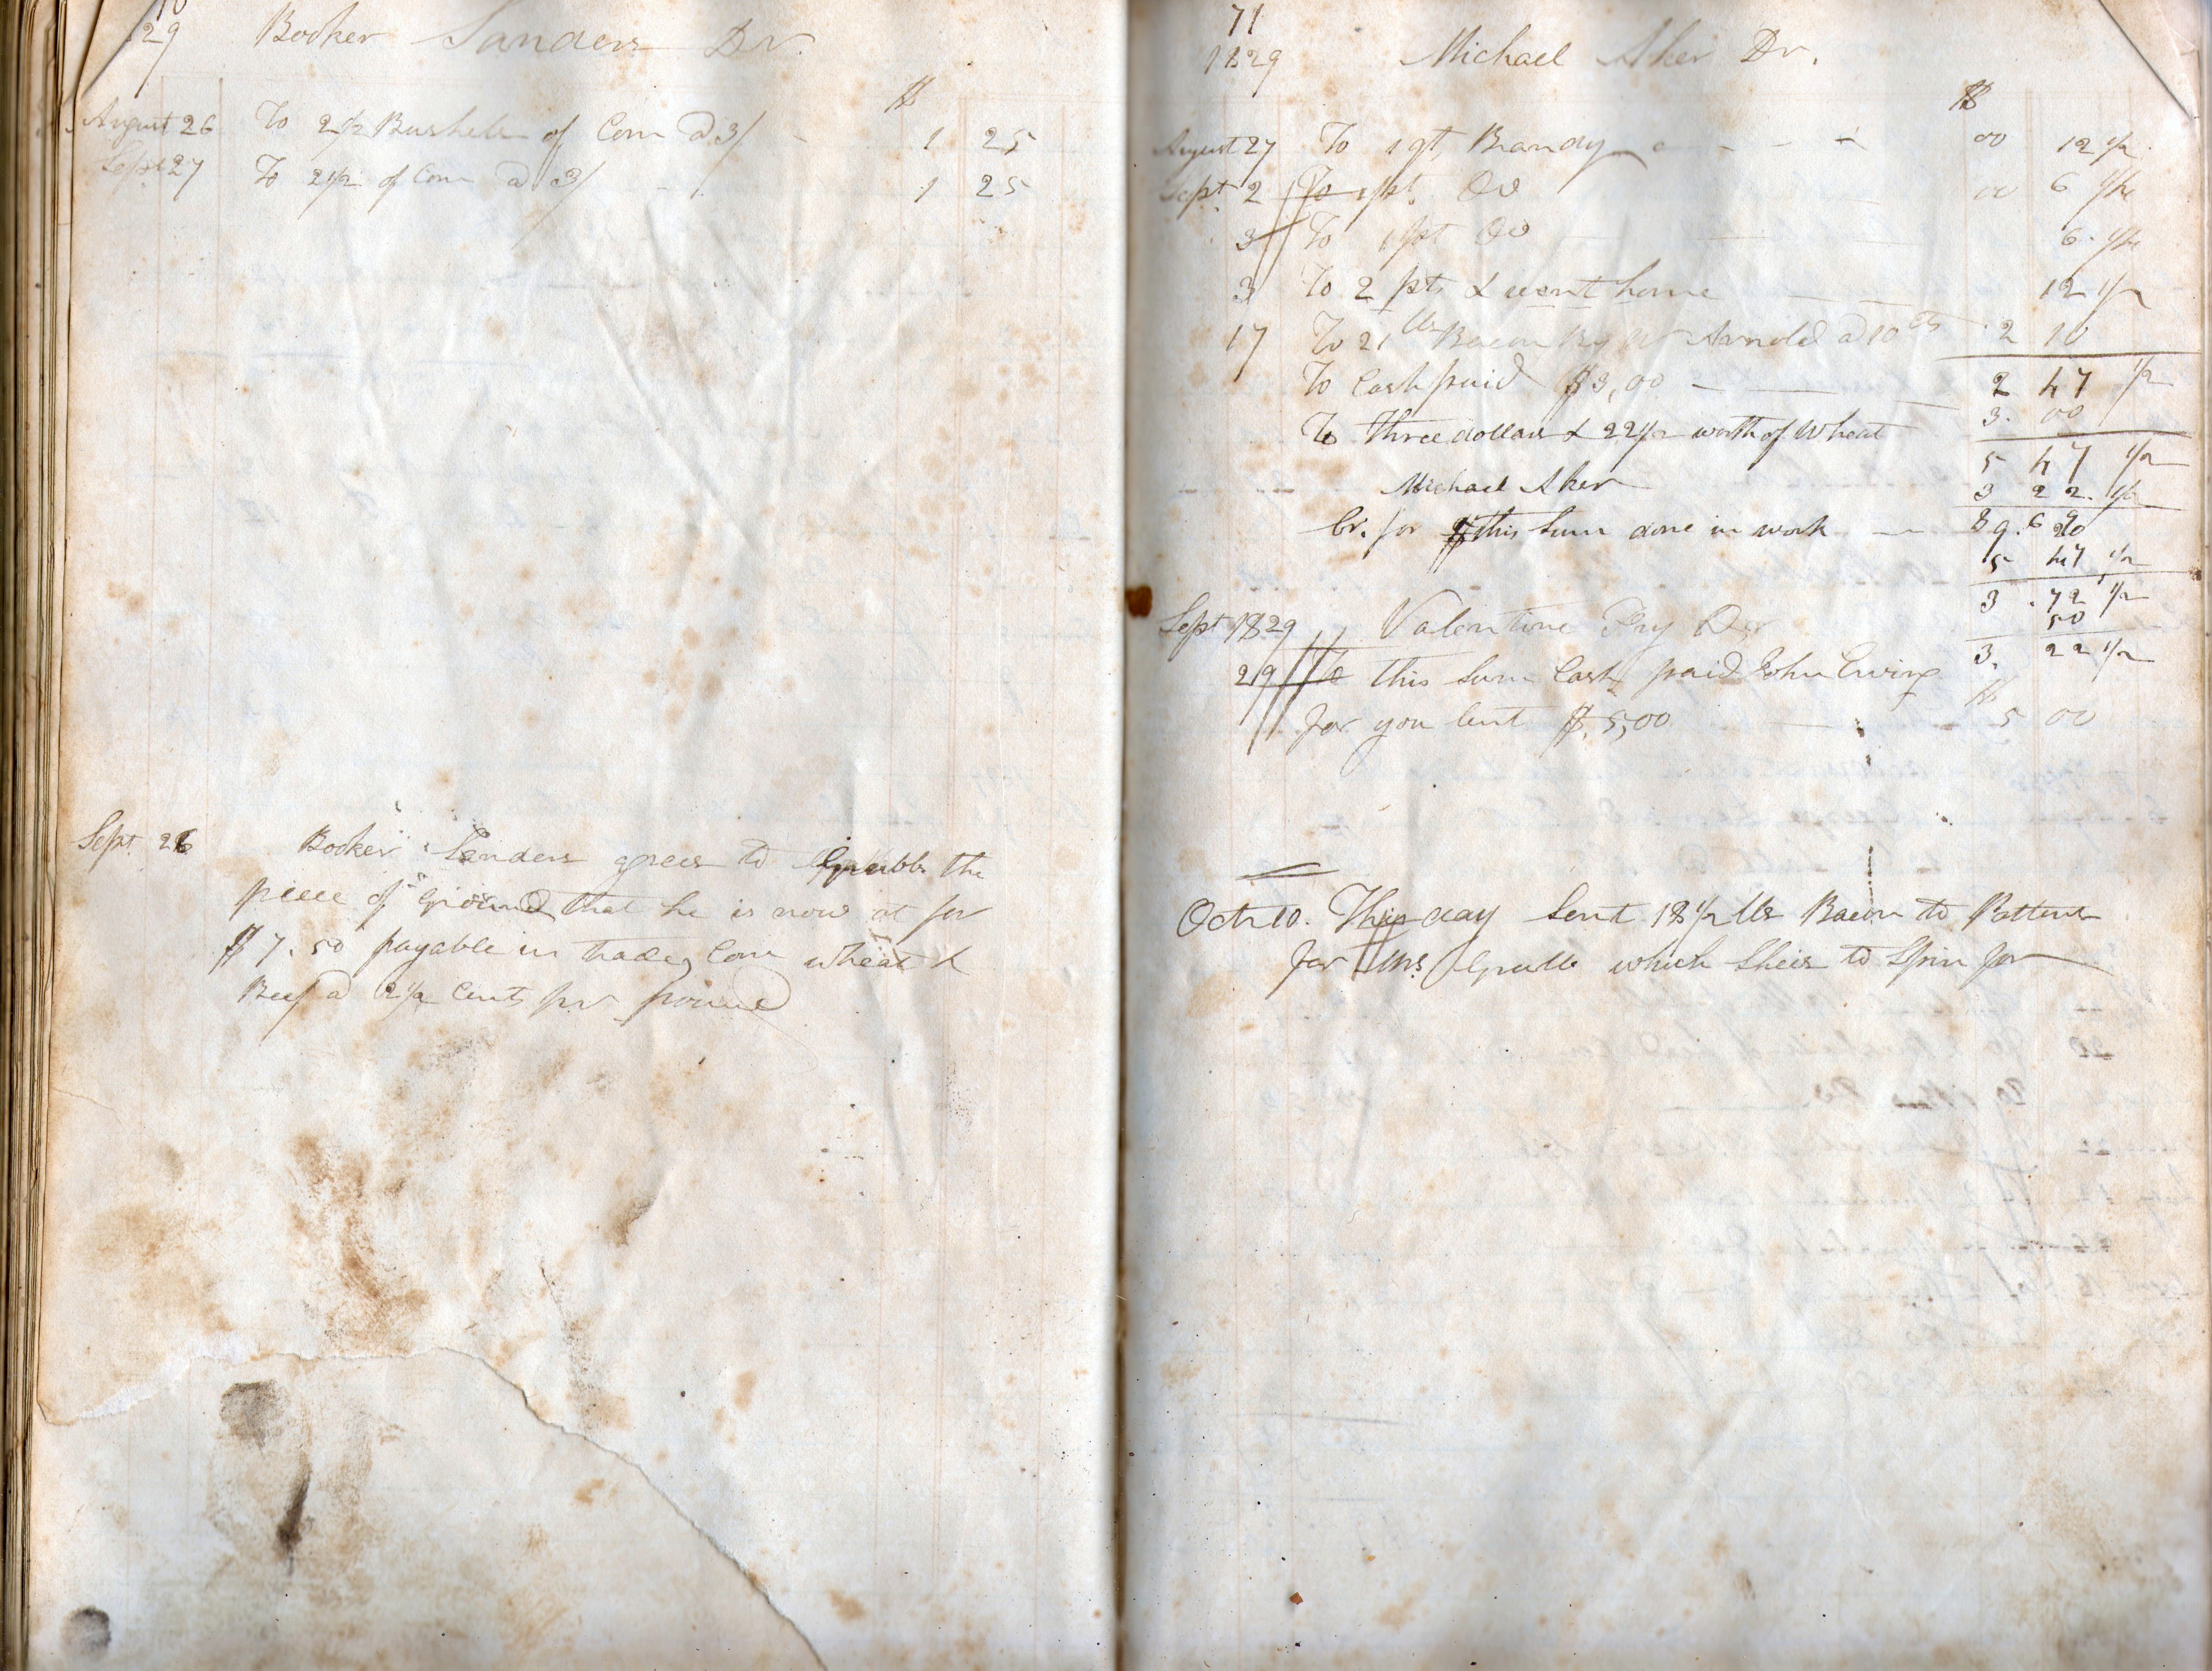 29 Booker Sanders Dr.
$
August 26 To 2 1/2 Bushels of Corn @ 3/ - 1 25
Sept 27 To 2 1/2 of Corn @ 3/ - 1 25
Sept. 26 Booker Sanders agrees to Grubb the
piece of Ground that he is now at for
$7.50 payable in trade, Corn wheat &
Beef @ 2 1/2 Cents pr pound
71
1829 Michael Aker Dr.
$
August 27 To 1 qt Brandy - - - - 00 12 1/2
Sept. 2 To 1 pt. Do 00 6 1/4
3 To 1 pt Do 6 1/4
3 To 2 pts & went home 12 1/2
17 To 21 lbs Bacon By W Arnold @ 10 cts 2 10
To Cash paid $3,00 - 2 47 1/2
3. 00
To Three dollars & 22 1/2 worth of Wheat
5 47 1/2
Michael Aker
3 22 1/2
Cr. for this Sum done in work
5 47 1/2
3 .72 1/2
50
3. 22 1/2
Sept 1829 Valentine Fry Dr
29 To this Sum Cash paid John Ewing
$
for you lent $.5,00 5 00
Octr 10. This day Sent 18 1/2 lbs Bacon to
for Mrs. Grubb which Sheis to Spin for